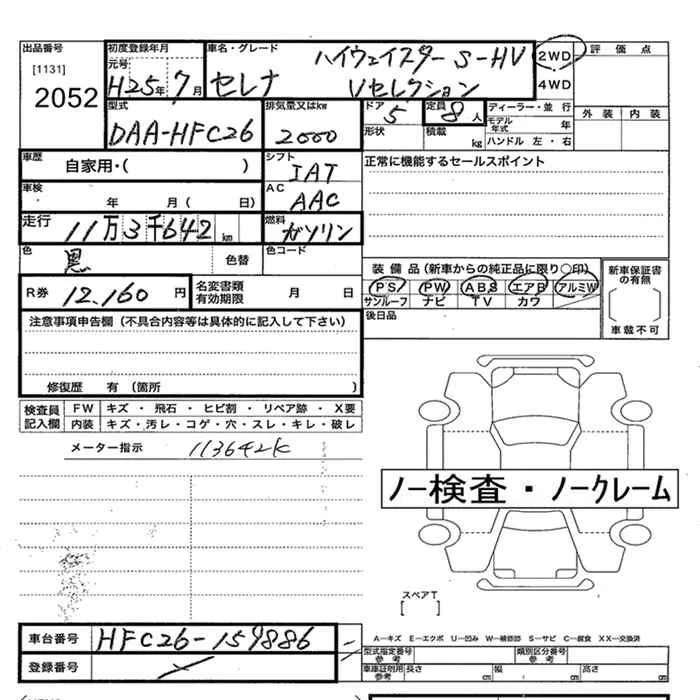 出品番号 初度登録年月 車名・グレード ハイウェイスター S-HV 2WD 評価点
[1131] 元号 H25年 7月 セレナ Vセレクション 4WD
2052 型式 排気量又はkw ドア 5 定員 8人 ディーラー・並行 外装 内装
DAA-HFC26 2000 形状 積載 kg モデル年式 年
ハンドル 左・右
車歴 自家用・( ) シフト IAT 正常に機能するセールスポイント
車検 年 月( 日) AC AAC
走行 11万3千642km 燃料 ガソリン
色 黒 色替 色コード 装備品(新車からの純正品に限り○印) 新車保証書の有無
R券 12,160円 名変書類有効期限 月 日 PS PW ABS エアB アルミW
サンルーフ ナビ TV カワ
注意事項申告欄(不具合内容等は具体的に記入して下さい) 後日品 車載不可
修復歴 有(箇所 )
検査員記入欄 FW キズ・飛石・ヒビ割・リペア跡・X要
内装 キズ・汚レ・コゲ・穴・スレ・キレ・破レ
メーター指示 113642K
ノー検査・ノークレーム
スペアT
[ ]
車台番号 HFC26-159886 A－キズ E－エクボ U－凹み W－補修跡 S－サビ C－腐食 XX－交換済
登録番号 型式指定番号 参考 類別区分番号 参考
車庫証明用 参考 長さ cm 幅 cm 高さ cm